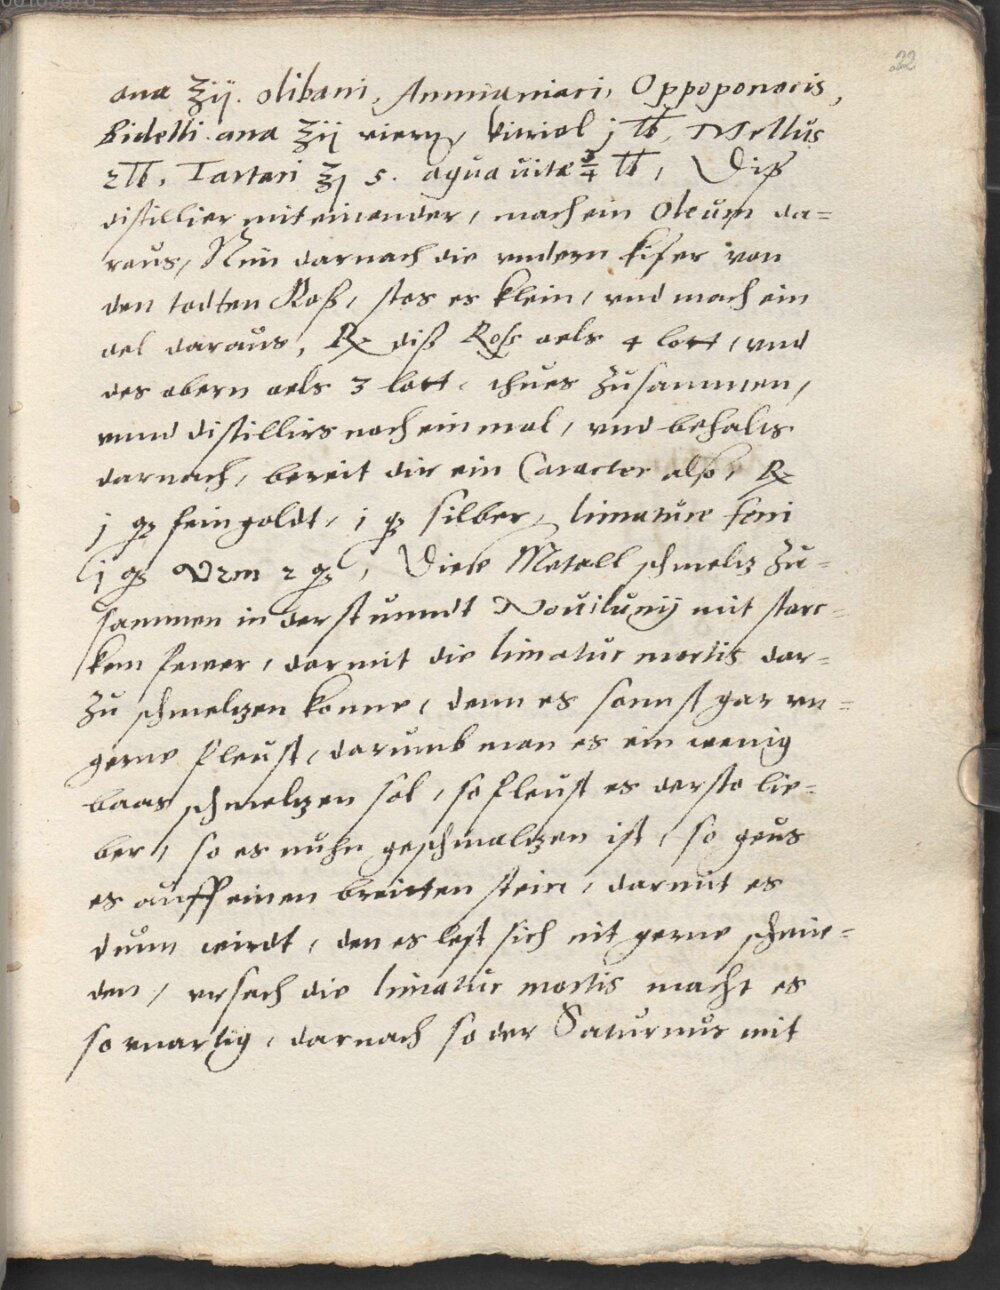 22
ana ℥ij. olibani, Ammaniaci, Oppoponacis,
Bidelli ana ℥ij vierg, vitriol j ℔, Mellus
2 ℔, Tartari ℥ 5. aqua vitæ ¾ ℔, Diß
distillier mit einander, mach ein Oleum da=
raus, Nim darnach die undern kifer von
den todten Roß, stos es klein, und mach ein
oel daraus, ℞ diß Roß oels 4 lott, und
des obern oels 3 lott, thues zusammen,
unnd distillirs noch einmal, und behalts
darnach, bereit dir ein Caracter also, ℞
j qz fein goldt, j qz silber, limature ferri
j qz 2 qz, Diese Metall schmeltz zu=
sammen in der stunndt Novilunij mit starc=
kem fewer, darmit die limatur mortis dar=
zu schmeltzen konne, denn es sonnst gar un=
gerne fleust, darumb man es ein wenig
baas schmeltzen sol, so fleust es dersto lie=
ber, so es nuhn geschmaltzen ist, so geus
es auff einen breitten stein, darmit es
dunn wirdt, den es lest sich nit gerne schmie=
den, ursach die limatur mortis macht es
so unartig, darnach so der Saturnus mit